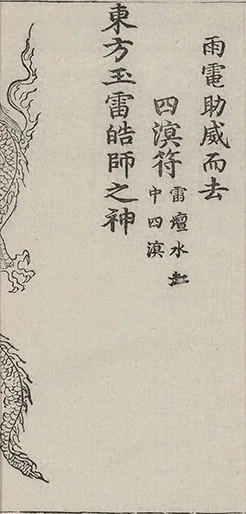 雨電助威而去
四溟符
雷壇水
中四溟
東方玉雷皓師之神